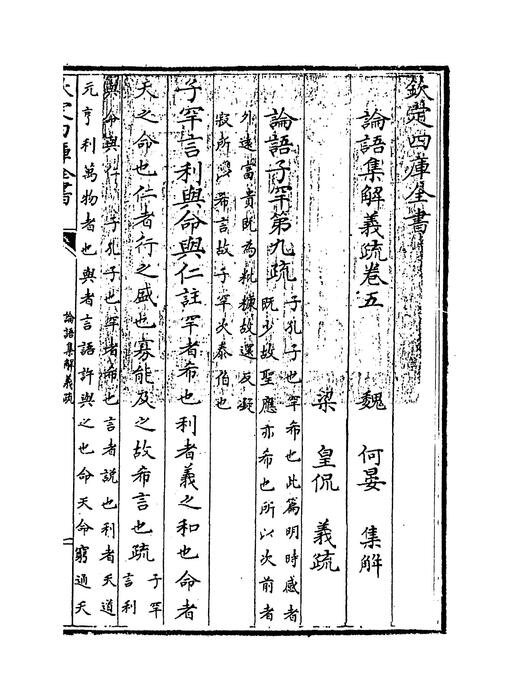 欽定四庫全書
論語集解義疏卷五
魏 何晏 集解
梁 皇侃 義疏
論語子罕第九疏子孔子也罕希也此篇明時感者
既少故聖應亦希也所以次前者
外遠富貴既為粃糠故還反凝
寂所以希言故子罕次泰伯也
子罕言利與命與仁註罕者希也利者義之和也命者
天之命也仁者行之盛也寡能及之故希言也疏子罕
言利
與命與仁 子孔子也罕者希也言者說也利者天道
元亨利萬物者也與者言語許與之也命天命窮通夭
欽定四庫全書
論語集解義疏